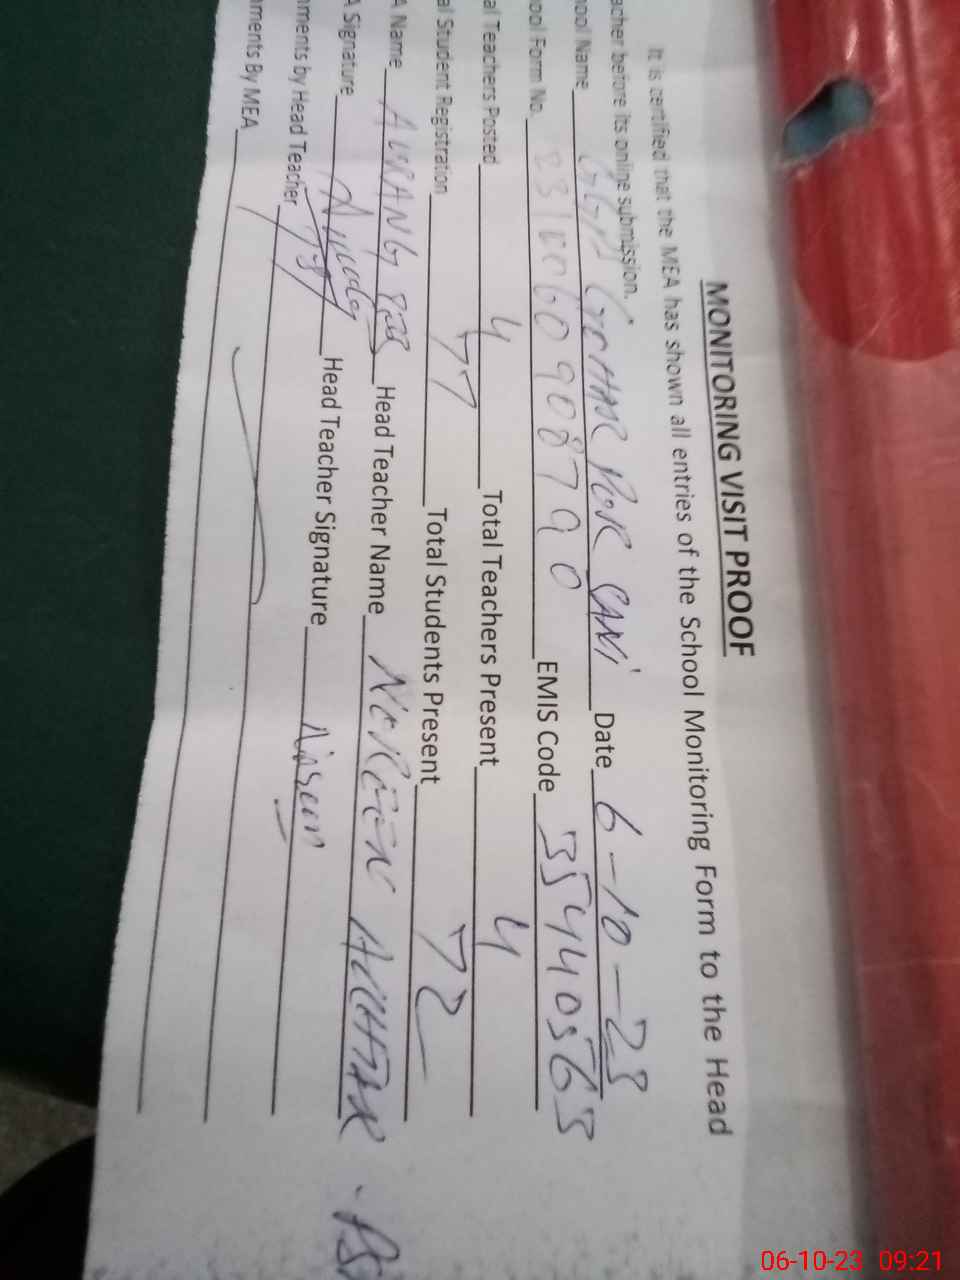 MONITORING VISIT PROOF
It is certified that the MEA has shown all entries of the School Monitoring Form to the Head
acher before its online submission.
ool Name Date 6-10-23
ool Form No. EMIS Code 35440563
al Teachers Posted 4 Total Teachers Present 4
al Student Registration 77 Total Students Present 72
A Name AURANG ZEB Head Teacher Name NOREEN AKHTAR
A Signature Head Teacher Signature
mments by Head Teacher
ments By MEA
06-10-23 09:21